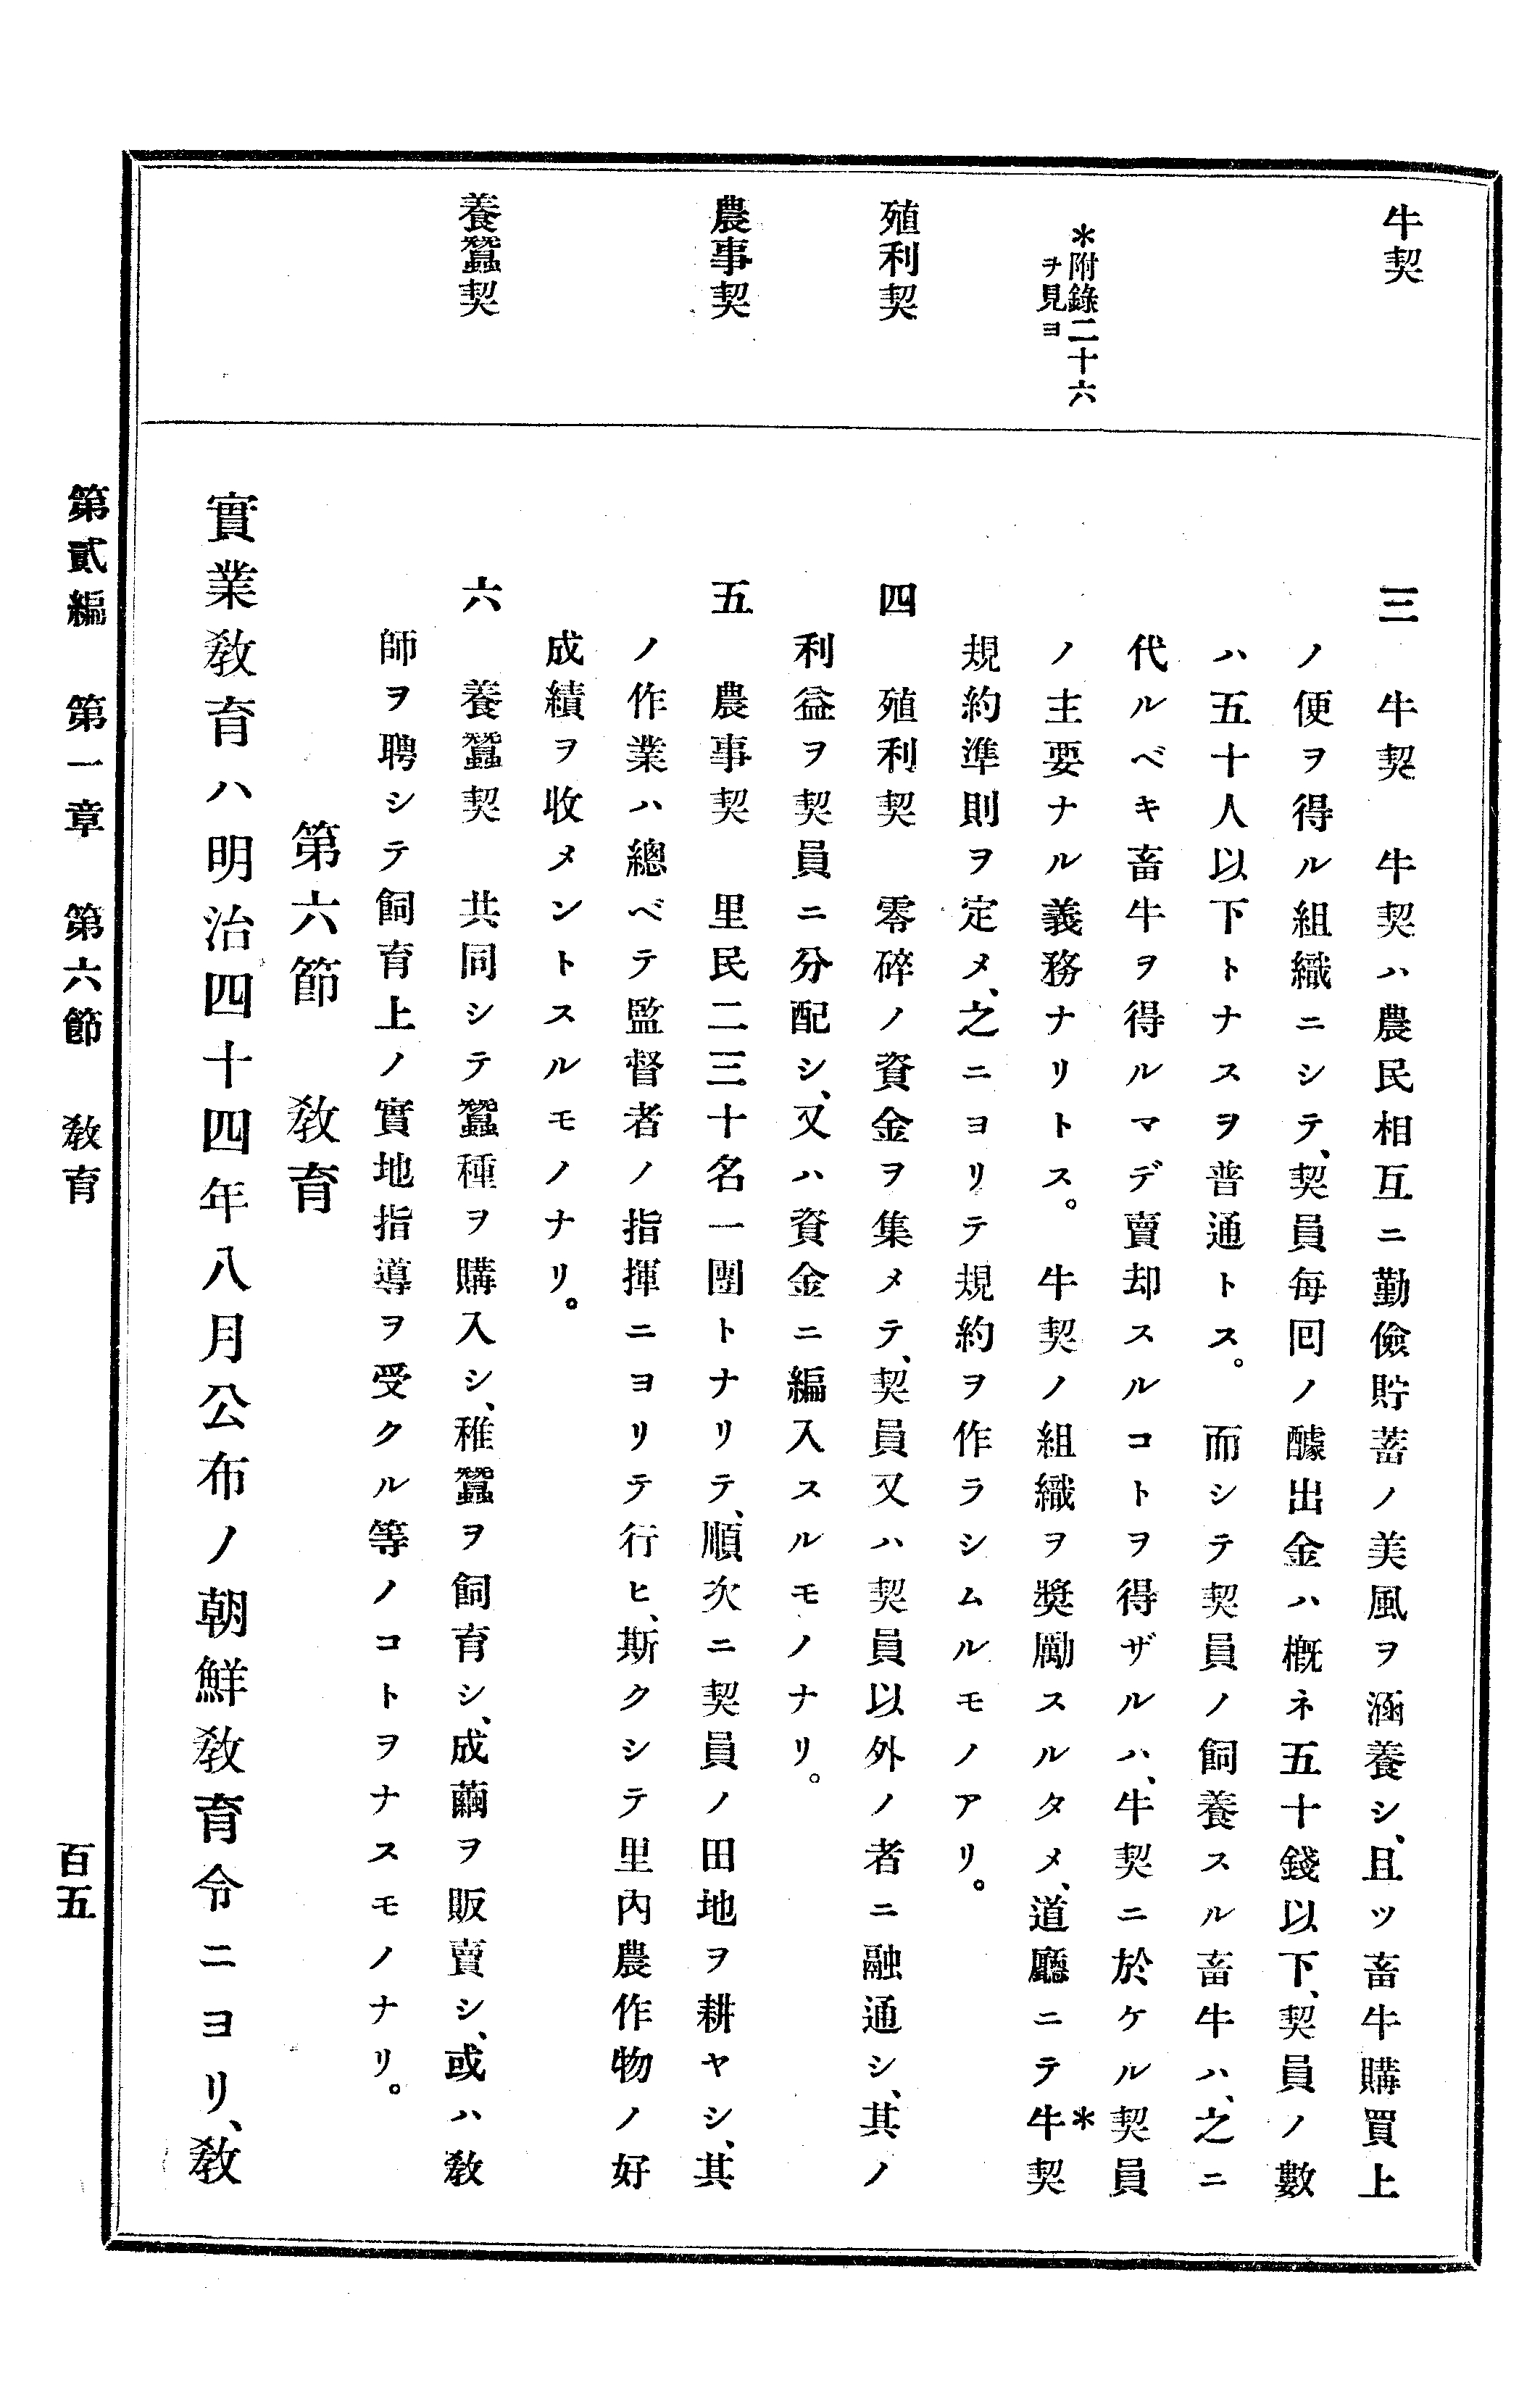 牛契
*附錄二十六
ヲ見ヨ
殖利契
農事契
養蠶契
三　牛契　牛契ハ農民相互ニ勤儉貯蓄ノ美風ヲ涵養シ、且ツ畜牛購買上
ノ便ヲ得ル組織ニシテ、契員每回ノ醵出金ハ槪ネ五十錢以下、契員ノ數
ハ五十人以下トナスヲ普通トス。而シテ契員ノ飼養スル畜牛ハ、之ニ
代ルベキ畜牛ヲ得ルマデ賣却スルコトヲ得ザルハ、牛契ニ於ケル契員
ノ主要ナル義務ナリトス。牛契ノ組織ヲ奬勵スルタメ、道廳ニテ*牛契
規約準則ヲ定メ、之ニヨリテ規約ヲ作ラシムルモノアリ。
四　殖利契　零碎ノ資金ヲ集メテ、契員又ハ契員以外ノ者ニ融通シ、其ノ
利益ヲ契員ニ分配シ、又ハ資金ニ編入スルモノナリ。
五　農事契　里民二三十名一團トナリテ、順次ニ契員ノ田地ヲ耕ヤシ、其
ノ作業ハ總ベテ監督者ノ指揮ニヨリテ行ヒ、斯クシテ里內農作物ノ好
成績ヲ收メントスルモノナリ。
六　養蠶契　共同シテ蠶種ヲ購入シ、稚蠶ヲ飼育シ、成繭ヲ販賣シ、或ハ敎
師ヲ聘シテ飼育上ノ實地指導ヲ受クル等ノコトヲナスモノナリ。
第六節　敎育
實業敎育ハ明治四十四年八月公布ノ朝鮮敎育令ニヨリ、敎
第貳編　第一章　第六節　敎育
百五